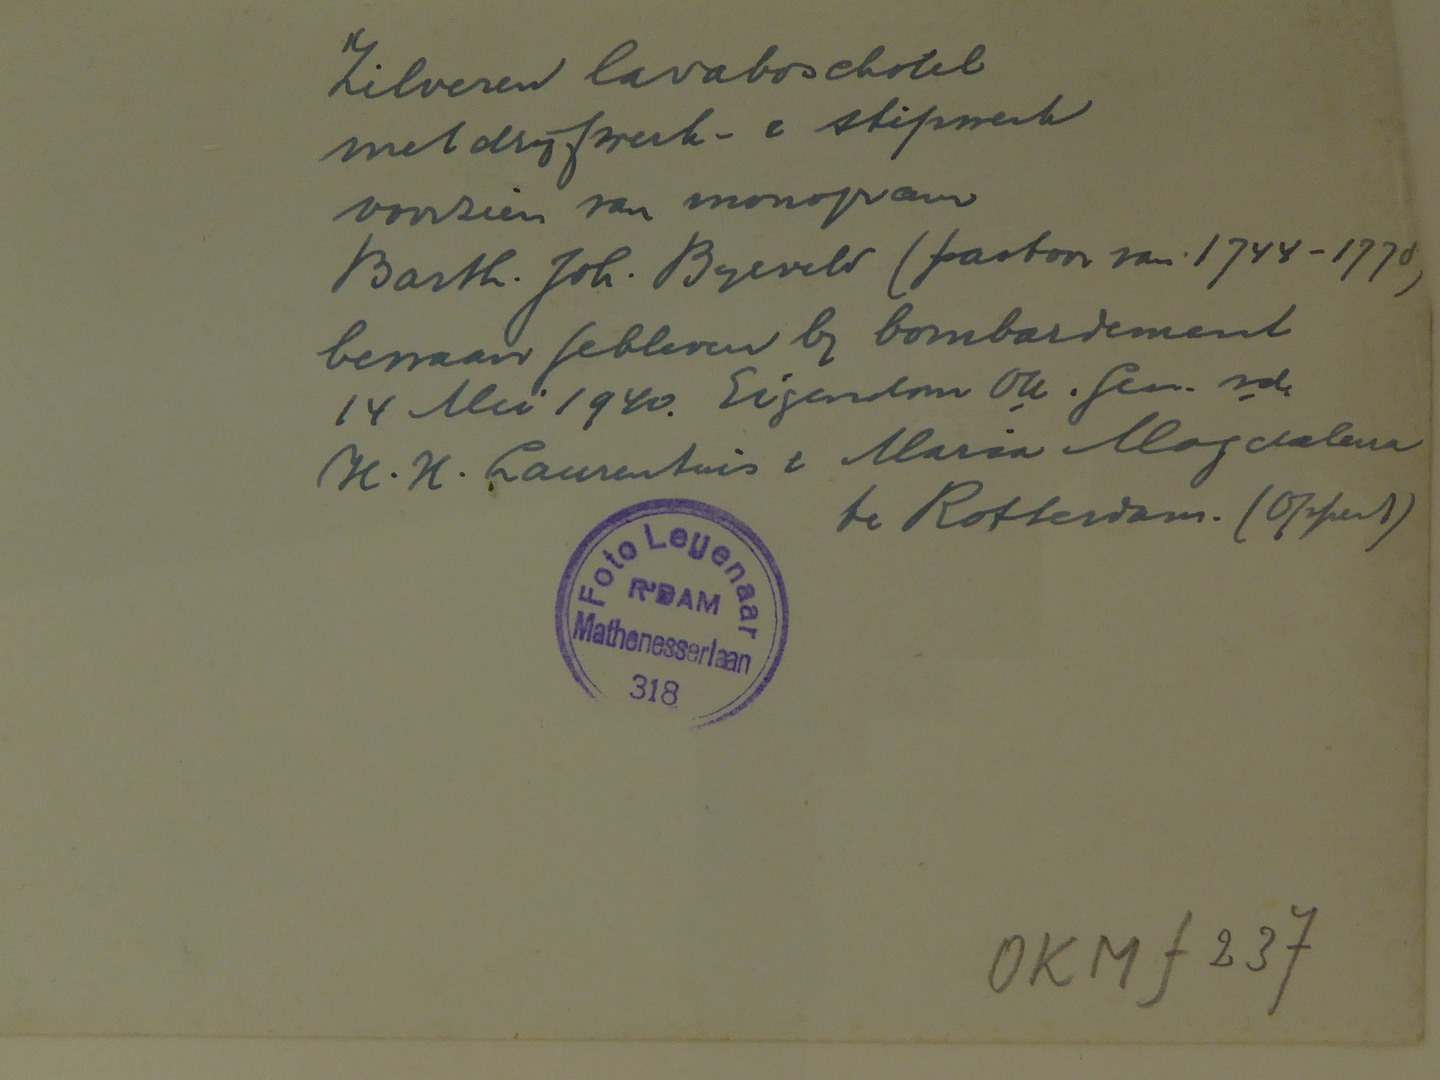 Zilveren lavaboschotel
met drijfwerk- e stipwerk
voorzien van monogram
Barth. Joh. Byeveld (pastoor van 1744-1778)
bewaard gebleven bij bombardement
14 Mei 1940. Eigendom OK. Gem. vde
H.H. Laurentius e Maria Magdalena
te Rotterdam. (Oppert)
Foto Leijenaar
R'DAM
Mathenesserlaan
318
OKM f 237